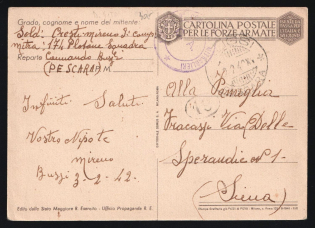 Grado, cognome e nome del mittente:
Sold: Crosti mireno 3ª comp.
mitra: 174 Plotone Squadra
Reparto Comando
(PESCARA)
Infiniti Saluti
Vostro Nipote
mireno
Bussi 3-2-42.
Edito dallo Stato Maggiore R. Esercito - Ufficio Propaganda
CARTOLINA POSTALE
PER LE FORZE ARMATE
Alla Famiglia
Fracassi Via Delle
Sperandie n° 1-
(Siena)